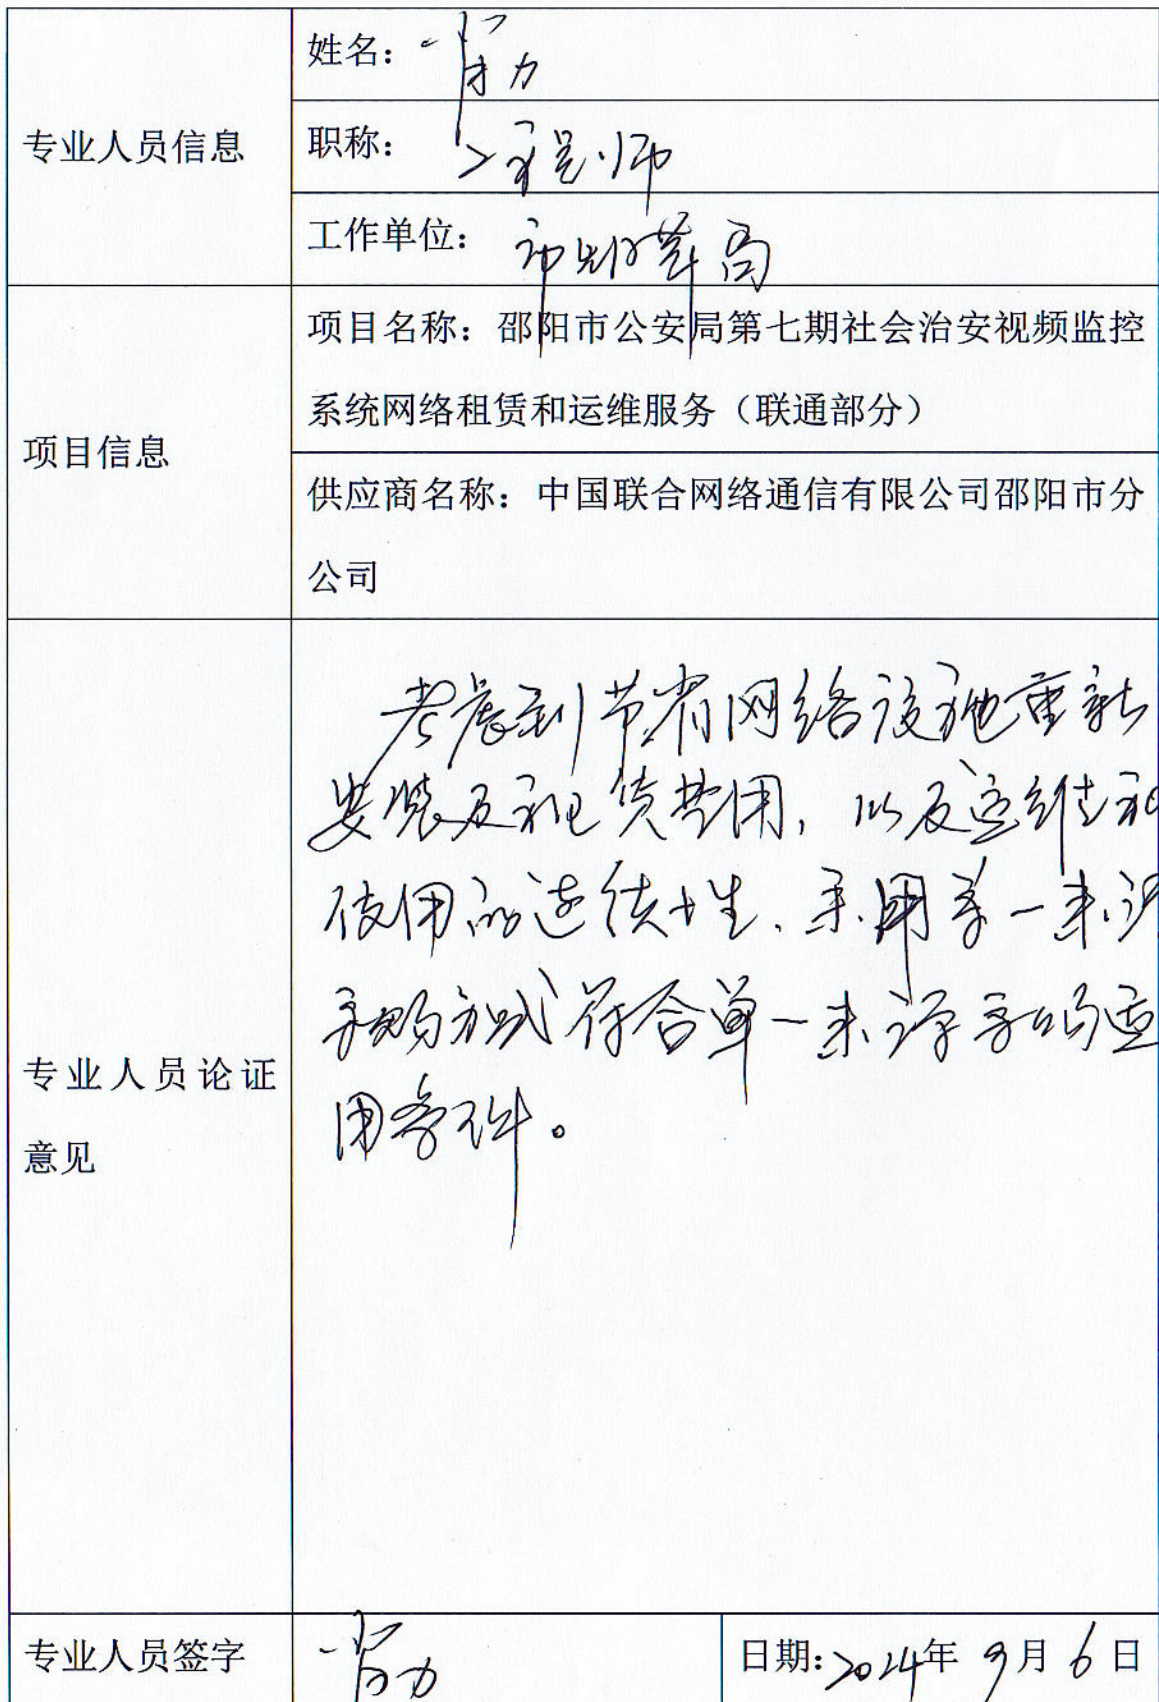 专业人员信息
姓名：
职称：工程师
工作单位：市
项目信息
项目名称：邵阳市公安局第七期社会治安视频监控
系统网络租赁和运维服务（联通部分）
供应商名称：中国联合网络通信有限公司邵阳市分
公司
专业人员论证
意见
考虑到节省网络设施重新
安装及租赁费用，以及运维和
使用的连续性、采用单一来源
采购方式符合单一来源采购适
用条件。
专业人员签字
日期：2024年9月6日